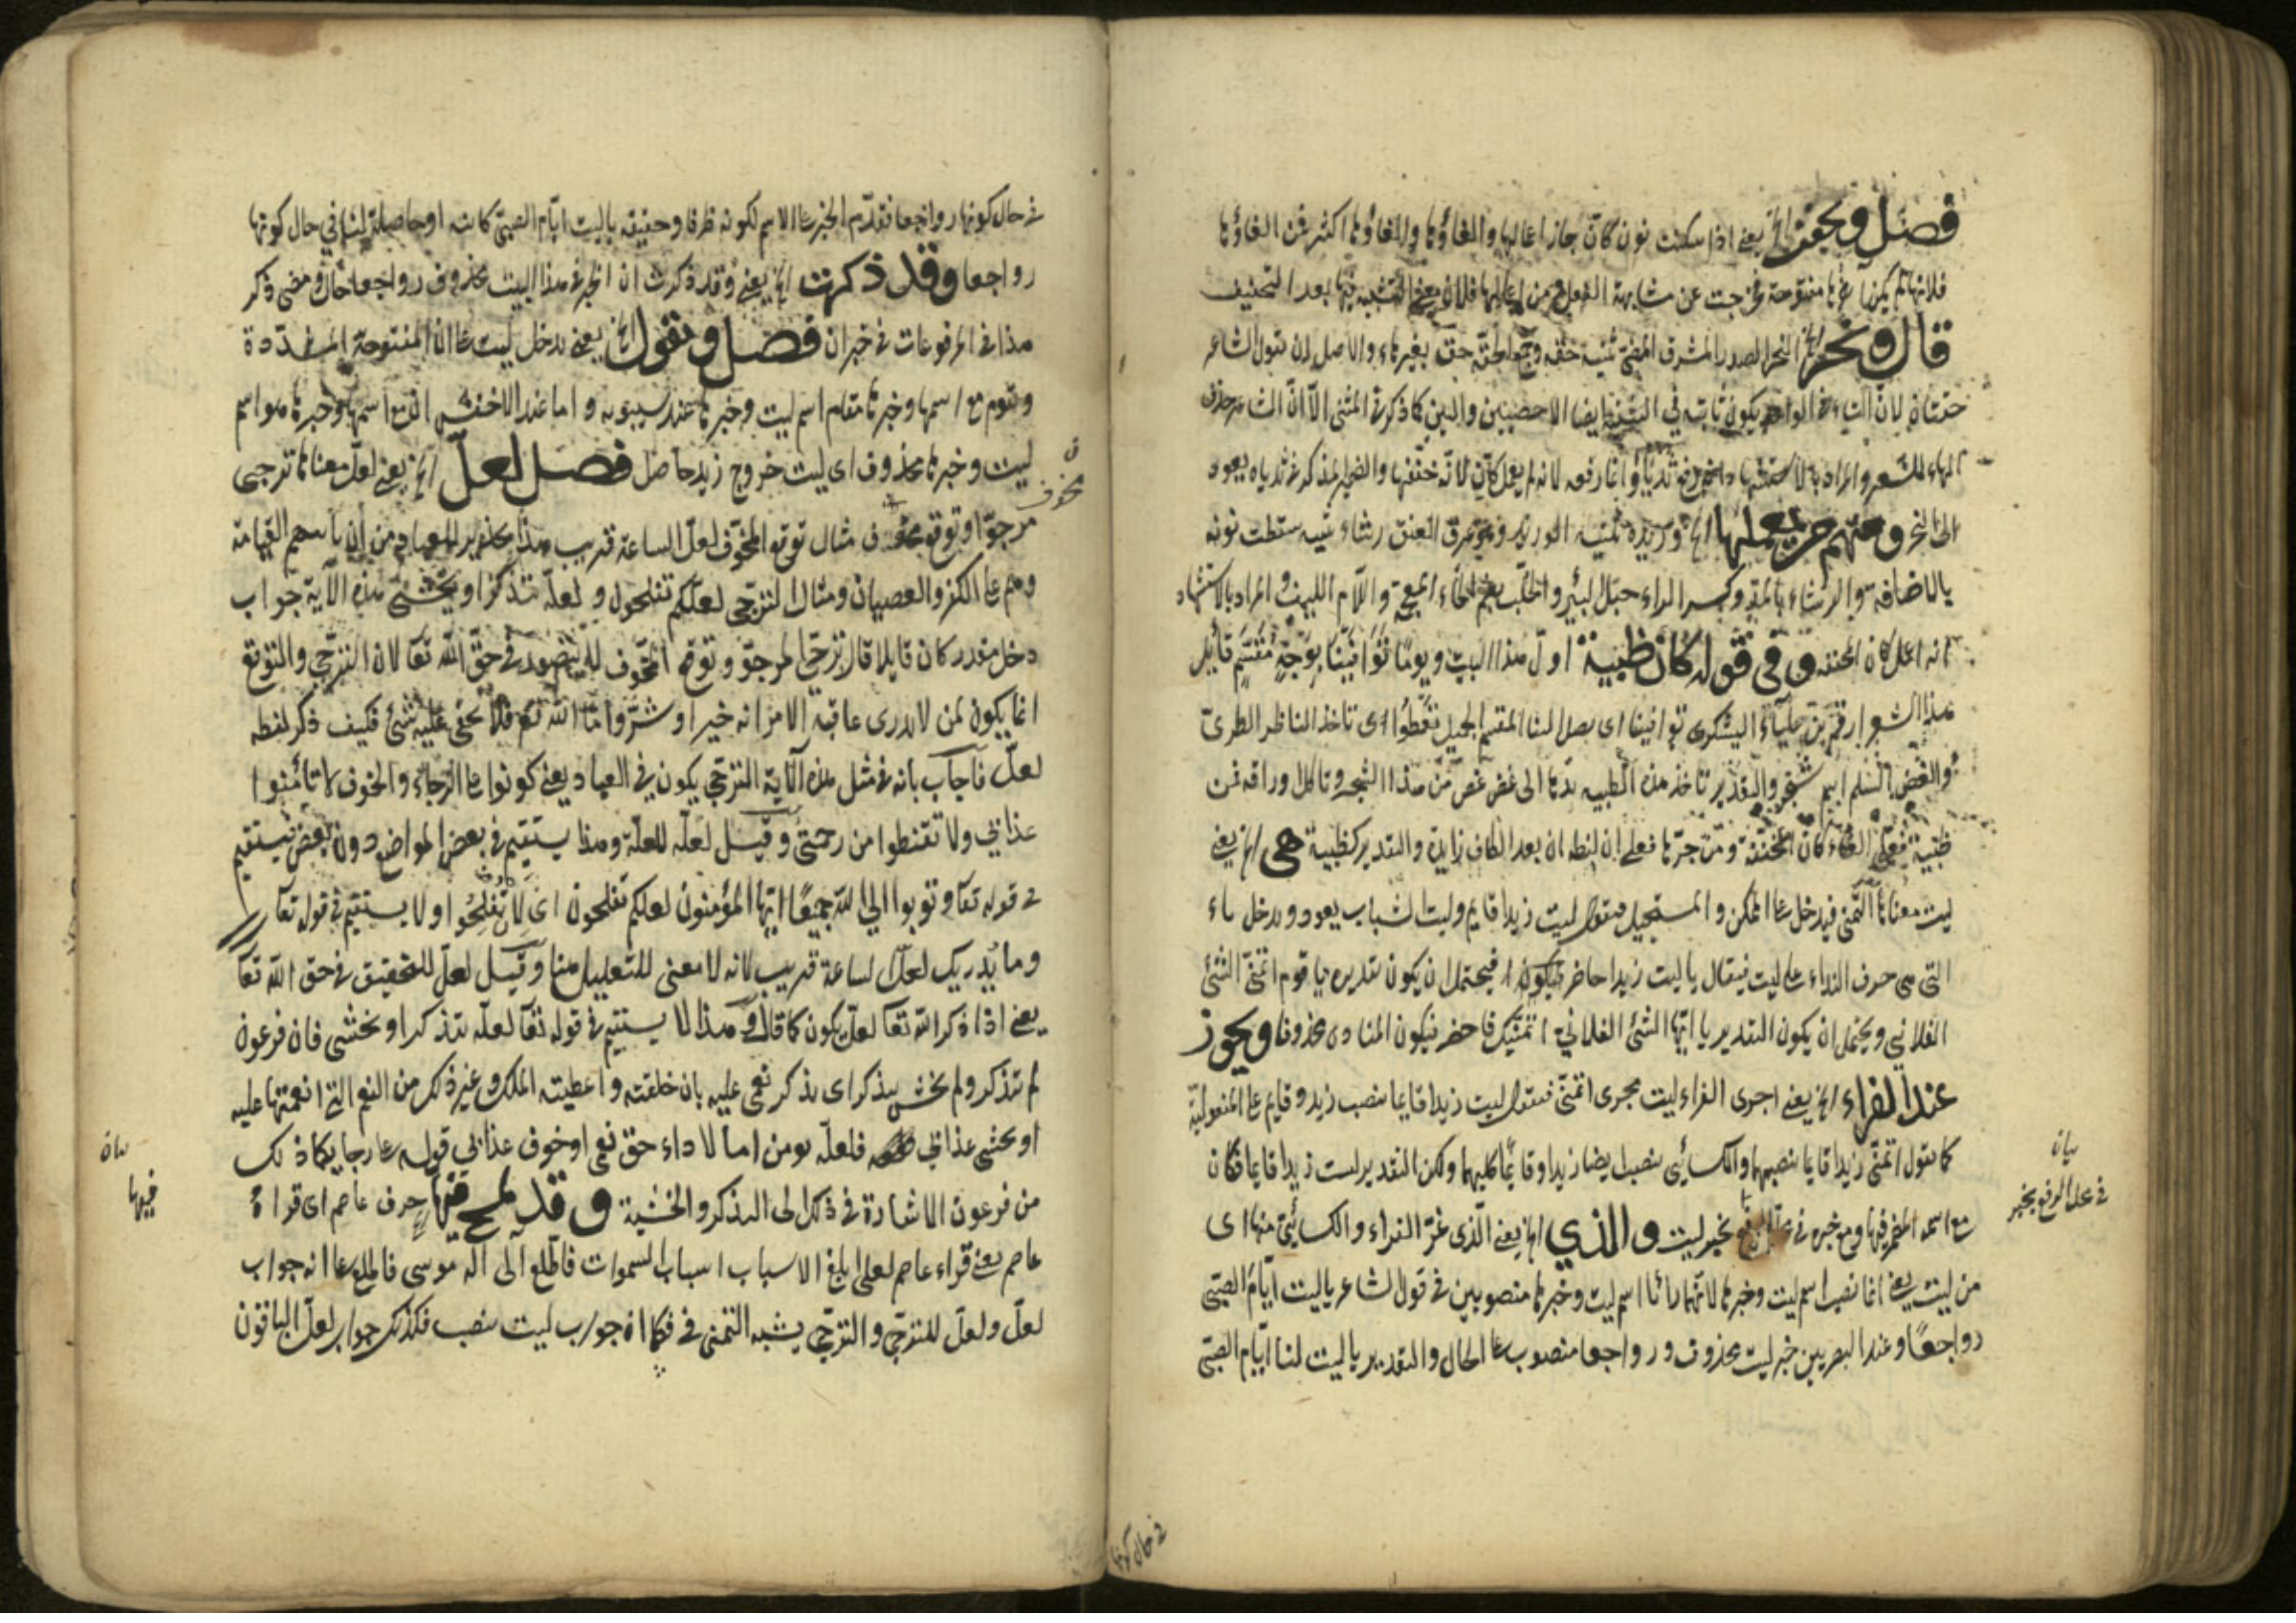 فصل ويخفف الخ يعني اذا سكنت نون كان جاز اعمالها والغاؤها والغاؤها اكثر فمن الغاؤها
فلانها لم يكن آخرها مفتوحة فخرجت عن مشابهة الفعل ومن اعمالها فلان معنى التشبيه فيها بعد التخفيف
قال ونحر الخ النحر الصدر المشرف المضئ تثنية حقه بغير تاء والاصل ان يقول الشاعر
حقتان لان التاء في الواحد يكون ثابتة في التثنية ايضا الا خصيين واليين كما ذكر في المثنى الا ان الشاعر حذف
الهاء للشعر والمراد بالاستشهاد ثدياه وانما رفعه لانه لم يعمل كان لانه خففها والضمير المذكر في ثدياه يعود
الى النحر ومنهم من يعملها الخ وريديه تثنية الوريد وهو عرق العنق رشاء تثنيه سقطت نونه
بالاضافة والرشاء بالمد وكسر الراء حبل البئر والخلب بضم الخاء المعجمة واللام الليف والمراد بالاستشهاد
انه اعمل كان المخففة وفي قوله كان ظبية اول هذا البيت ويوما توافينا بوجه مقسم قائل
هذا الشعر ارقم بن علباء اليشكري توافينا اى يصل الينا المقسم الجميل تعطوا اى تاخذ الناظر الطرى
والغض السلم اسم شجر والتقدير تاخذ هذه الظبية يدها الى غض غض من هذا الشجر وتاكل وراقه فمن
ظبية فعلى الغاء كان المخففة ومن جرها فعلى ان لفظه ان بعد الكاف زايدة والتقدير كظبية هى الخ يعني
ليت معناها التمنى فيدخل على الممكن والمستحيل فتقول ليت زيدا قايم وليت الشباب يعود ويدخل ياء
التى هى حرف النداء على ليت فيقال يا ليت زيدا حاضر فيحتمل ان يكون تقديره يا قوم اتمنى الشئ
الفلاني ويحتمل ان يكون التقدير يا ايها الشئ الفلاني اتمنيك فاحضر فيكون المنادى محذوفا ويجوز
عند الفراء الخ يعني اجرى الفراء ليت مجرى اتمنى فتقول ليت زيدا قايما بنصب زيد وقايم على المفعولية
كما تقول اتمنى زيدا قايما بنصبهما والكسائي بنصب ايضا زيدا وقايما كليهما ولكن التقدير ليت زيدا قايما فكان
مع اسمه المضمر فيها ومع خبره في بخبر ليت والذي الخ يعني الذى غر الفراء والكسائي منها اى
من ليت يعني انما نصب اسم ليت وخبرها لانهما رأيا اسم ليت وخبرها منصوبين في قول الشاعر يا ليت ايام الصبى
رواجعا وعند البصريين خبر ليت محذوف ورواجعا منصوب على الحال والتقدير يا ليت لنا ايام الصبى
بيان
في محل الرفع بخبر
في حال كونها
في حال كونها رواجعا فتقدم الخبر على الاسم لكونه ظرفا وحقيقه يا ليت ايام الصبى كائنه او حاصلة لنا في حال كونها
رواجعا وقد ذكرت الخ يعني وقد ذكرت ان الخبر في هذا البيت محذوف ورواجعا حال ومضى ذكر
هذا في المرفوعات في خبر ان فصل وتقول الخ يعني يدخل ليت على ان المفتوحة المشددة
وتقوم مع اسمها وخبرها مقام اسم ليت وخبرها عند سيبويه واما عند الاخفش ان مع اسمها وخبرها هو اسم
ليت وخبرها محذوف اى ليت خروج زيد حاصل فصل لعل الخ يعني لعل معناها ترجى
مرجو او توقع مخوف مثال توقع المخوف لعل الساعة قريب وهذا تحذير للعباد من ان ياتيهم القيامة
وهم على الكفر والعصيان ومثال الترجى لعلكم تفلحون و لعله يتذكر او يخشى هذه الآية جواب
دخل مقدر كان قايلا قال ترجى المرجو وتوقع المخوف لا يتصور في حق الله تعا لان الترجى والتوقع
انما يكون لمن لا يدرى عاقبة الامر انه خير او شر واما الله تع فلا يخفى عليه شئ فكيف ذكر لفظه
لعل فاجاب بانه في مثل هذه الآية الترجى يكون في العباد يعني كونوا على الرجاء والخوف لا تأمنوا
عذابي ولا تقنطوا من رحمتى وقيل لعله للعلة وهذا يستقيم في بعض المواضع دون بعض يستقيم
في قوله تعا وتوبوا الى الله جميعا ايها المؤمنون لعلكم تفلحون اى لان تفلحوا ولا يستقيم في قوله تعا
وما يدريك لعل الساعة قريب لانه لا معنى للتعليل هنا وقيل لعل للتحقيق في حق الله تعا
يعني اذا ذكر الله تعا لعل يكون كما قال وهذا لا يستقيم في قوله تعا لعله يتذكر او يخشى فان فرعون
لم يتذكر ولم يخش يتذكر اى يذكر نعمى عليه بان خلقته واعطيته الملك وغير ذلك من النعم التى انعمتها عليه
او يخشى عذابي فلعله يومن اما لاداء حق نعمى او خوف عذابي قوله على رجايكما ذلك
من فرعون الاشارة في ذلك الى التذكر والخشية وقد لمح فيها حرف عاصم اى قراءة
عاصم يعني قراءة عاصم لعلى ابلغ الاسباب اسباب السموات فاطلع الى اله موسى فاطلع على انه جواب
لعل ولعل للترجى والترجى يشبه التمنى في فكما ان جواب ليت ينصب فكذلك جواب لعل الباقون
مخوف
بيان
فيها